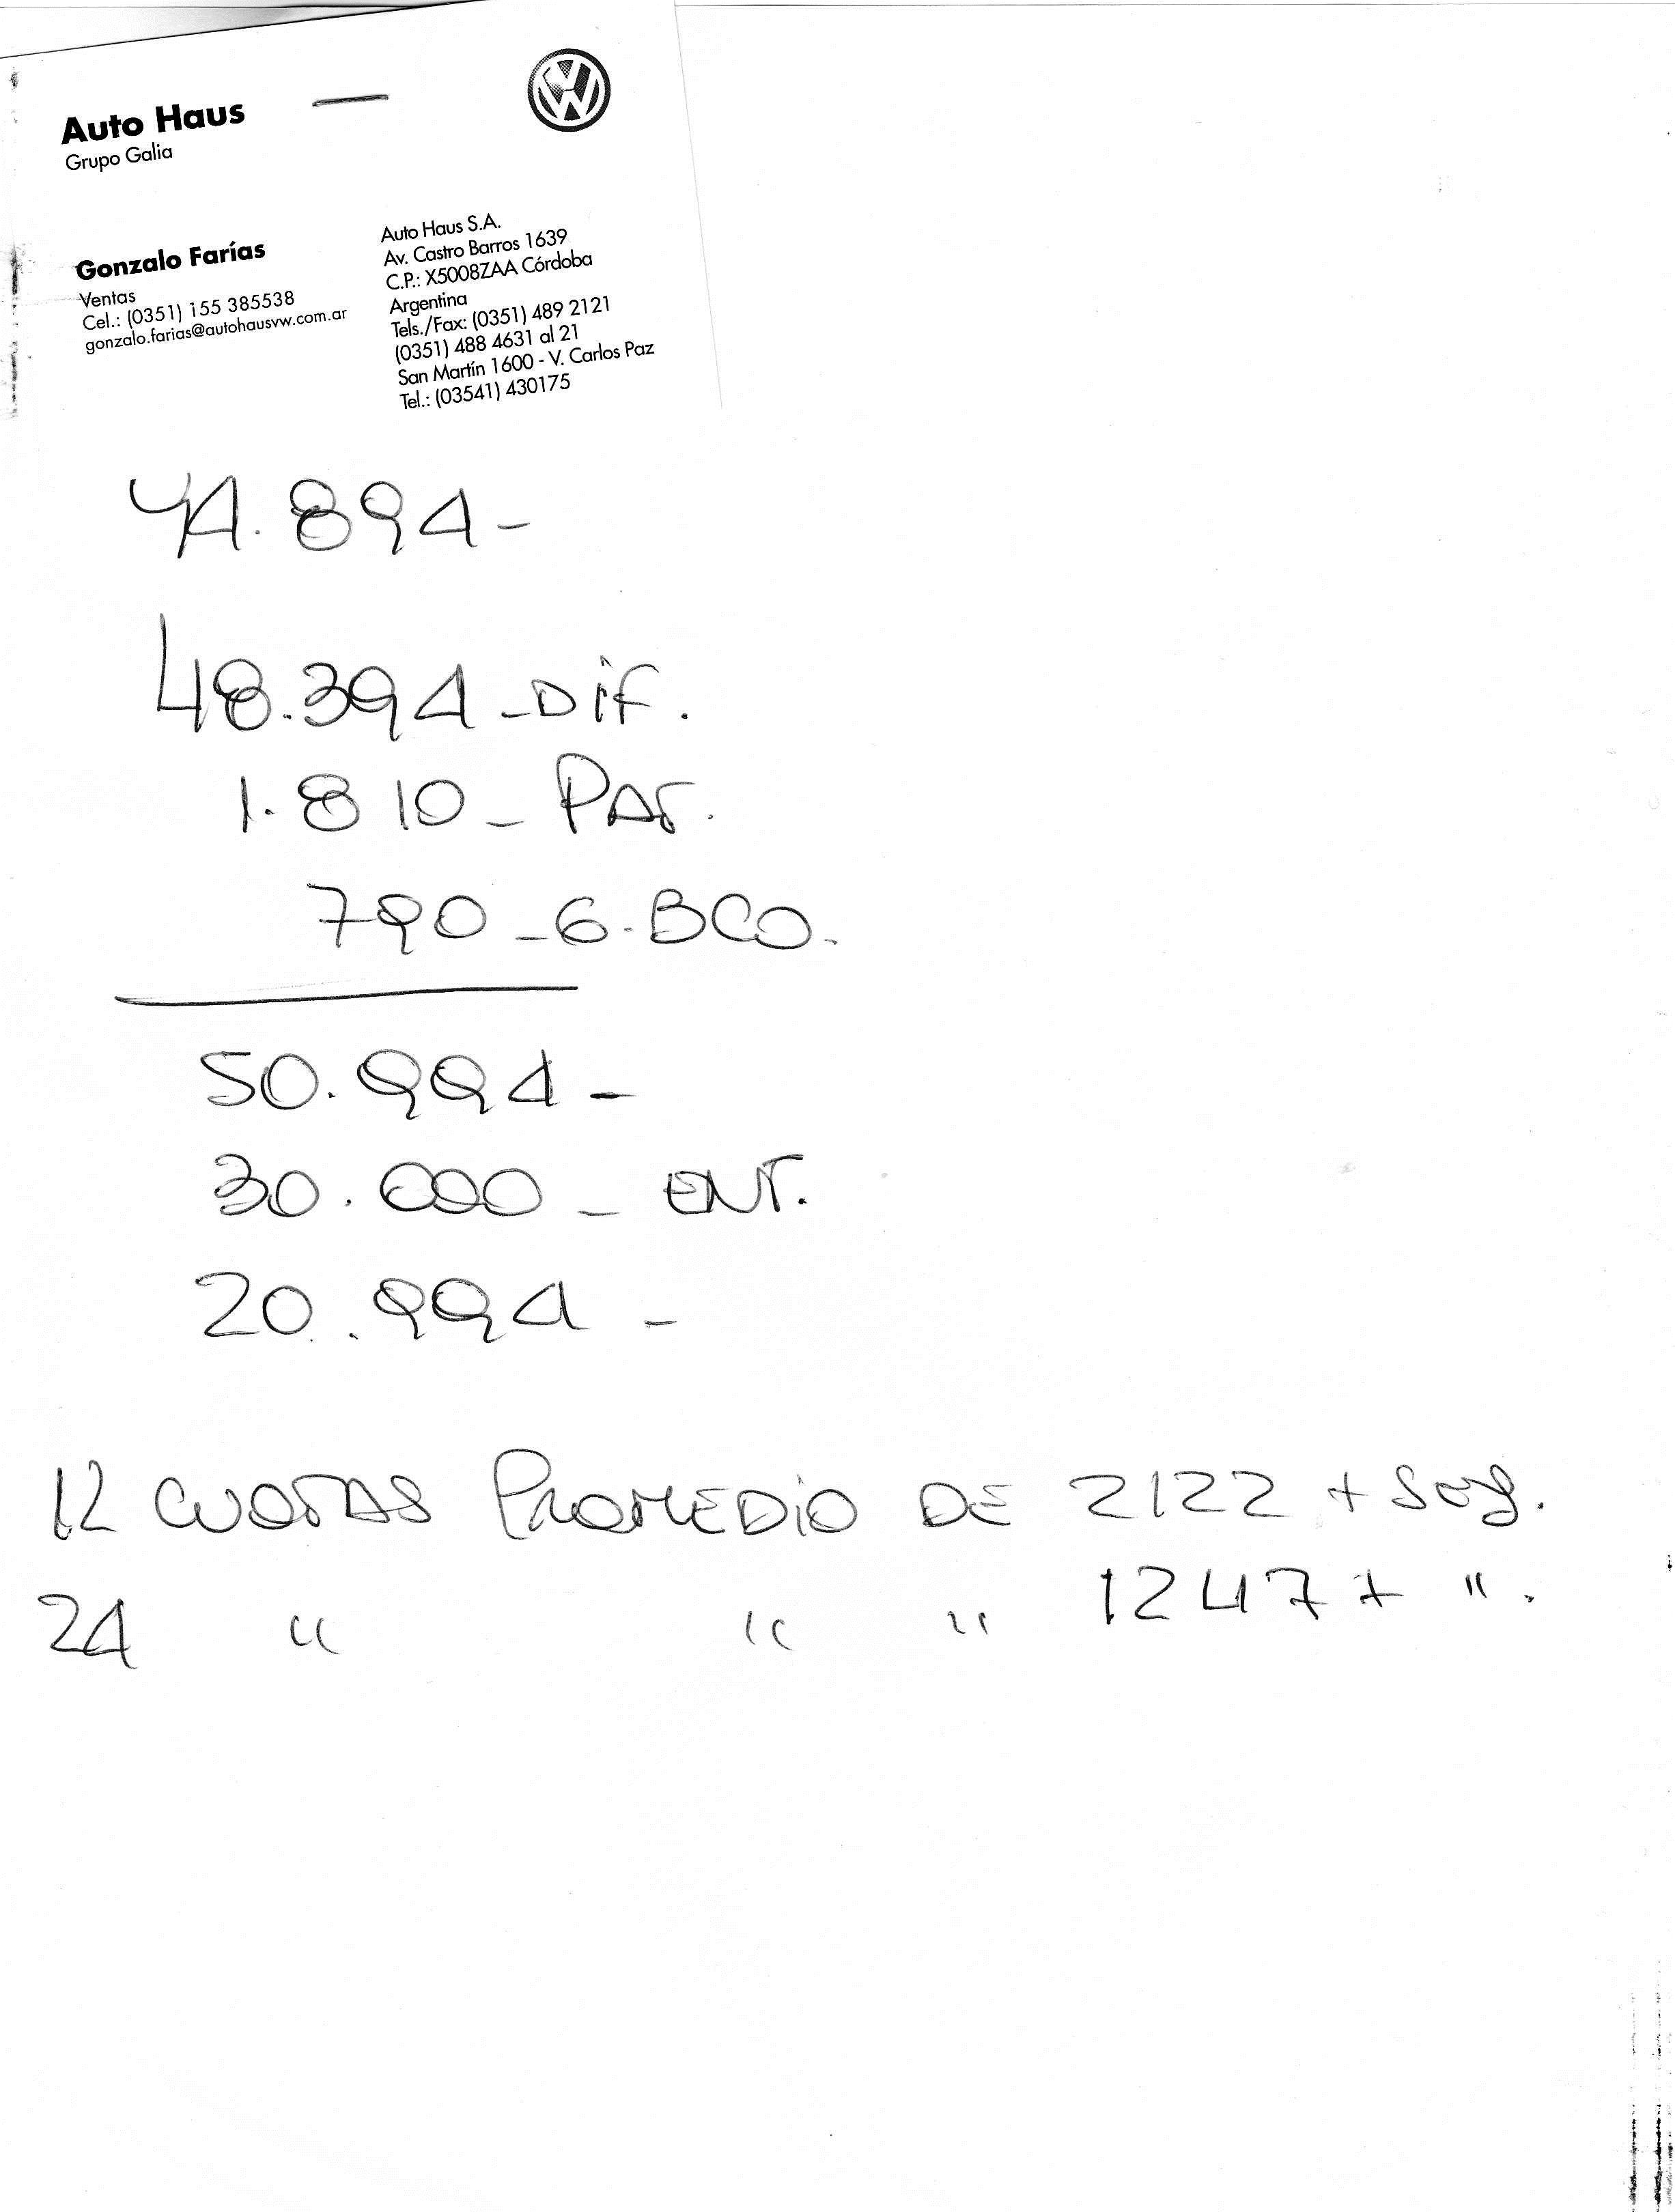 Auto Haus
Grupo Galia
Gonzalo Farías
Ventas
Cel.: (0351) 155 385538
gonzalo.farias@autohausvw.com.ar
Auto Haus S.A.
Av. Castro Barros 1639
C.P.: X5008ZAA Córdoba
Argentina
Tels./Fax: (0351) 489 2121
(0351) 488 4631 al 21
San Martín 1600 - V. Carlos Paz
Tel.: (03541) 430175
44.894-
48.394-DiF.
1.810-PAT.
790-G.BCO.
50.994-
30.000-ENT.
20.994-
12 CUOTAS PROMEDiO DE 2122 + Seg.
24 " " " 1247 + ".